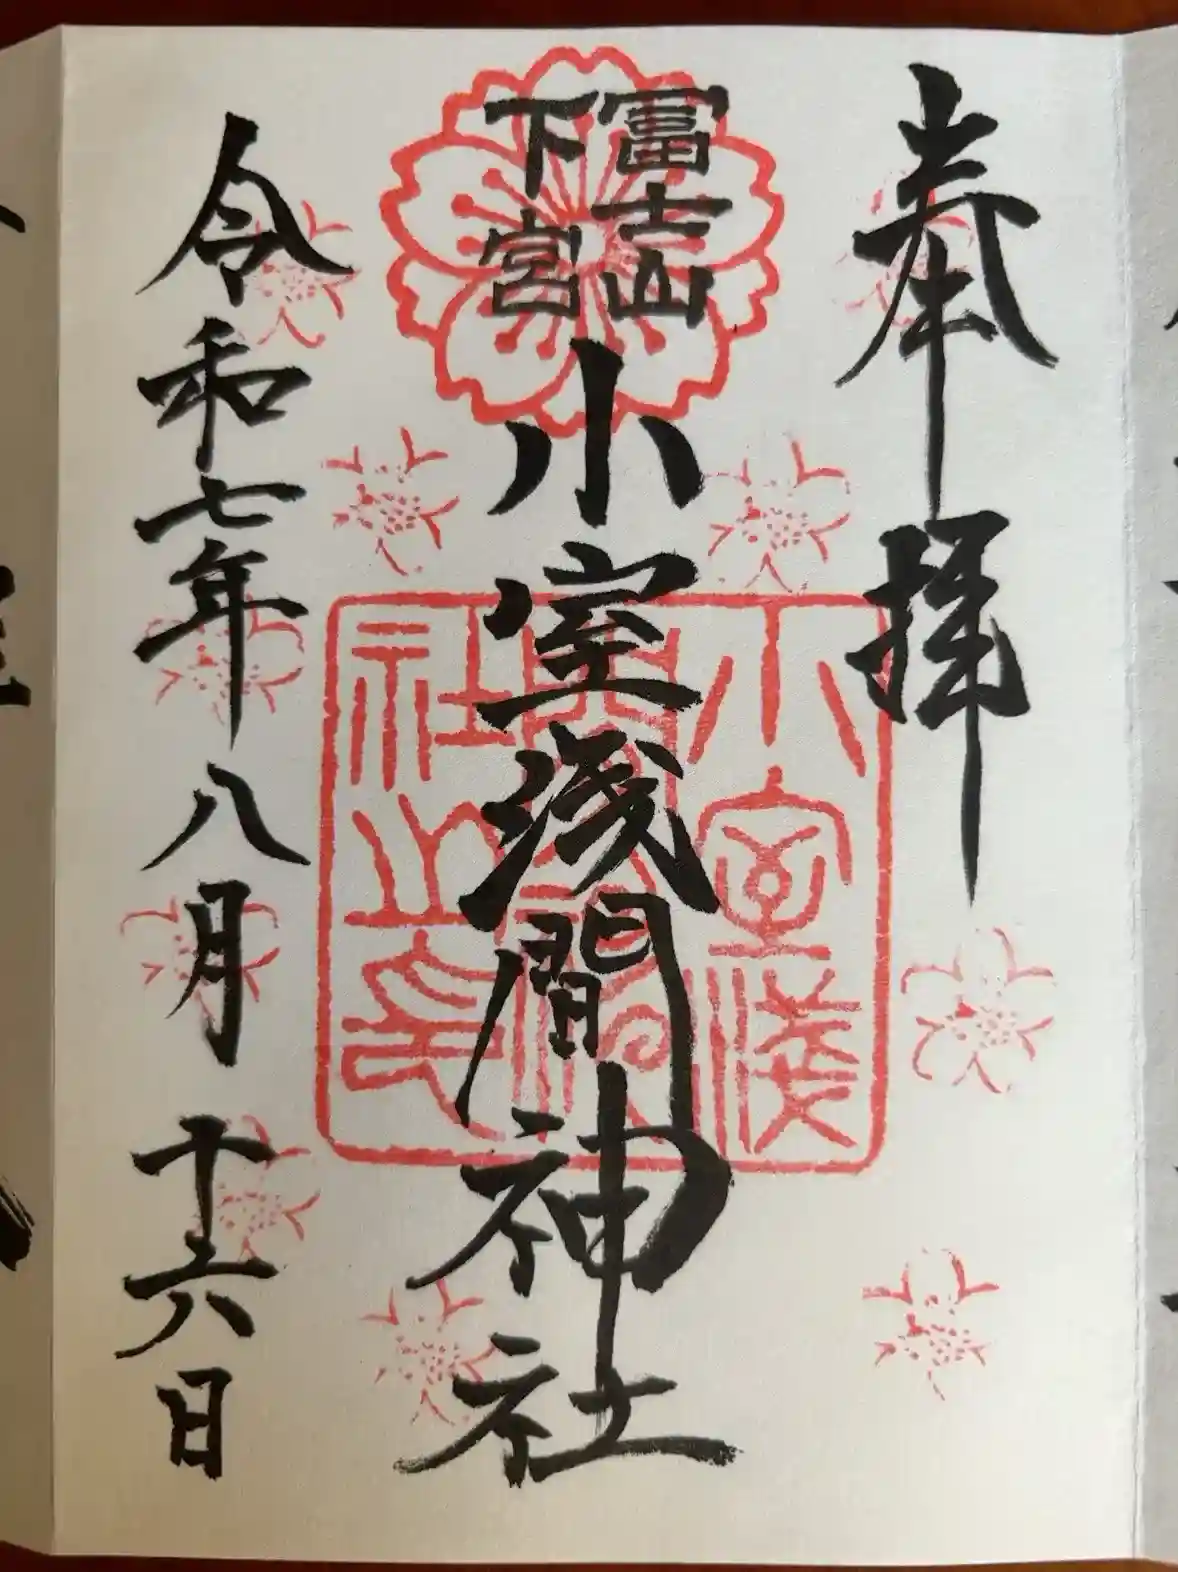 奉拝
富士山
下宮
小室浅間神社
小室浅
間神
社之印
令和七年八月十六日